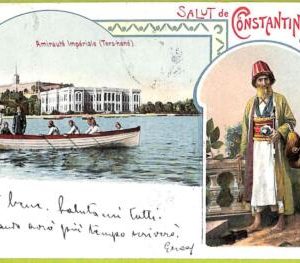 SALUT de CONSTANTIN
Amirauté Impériale (Ters-hané)
bene. Salutami tutti.
avrò più tempo scriverò.